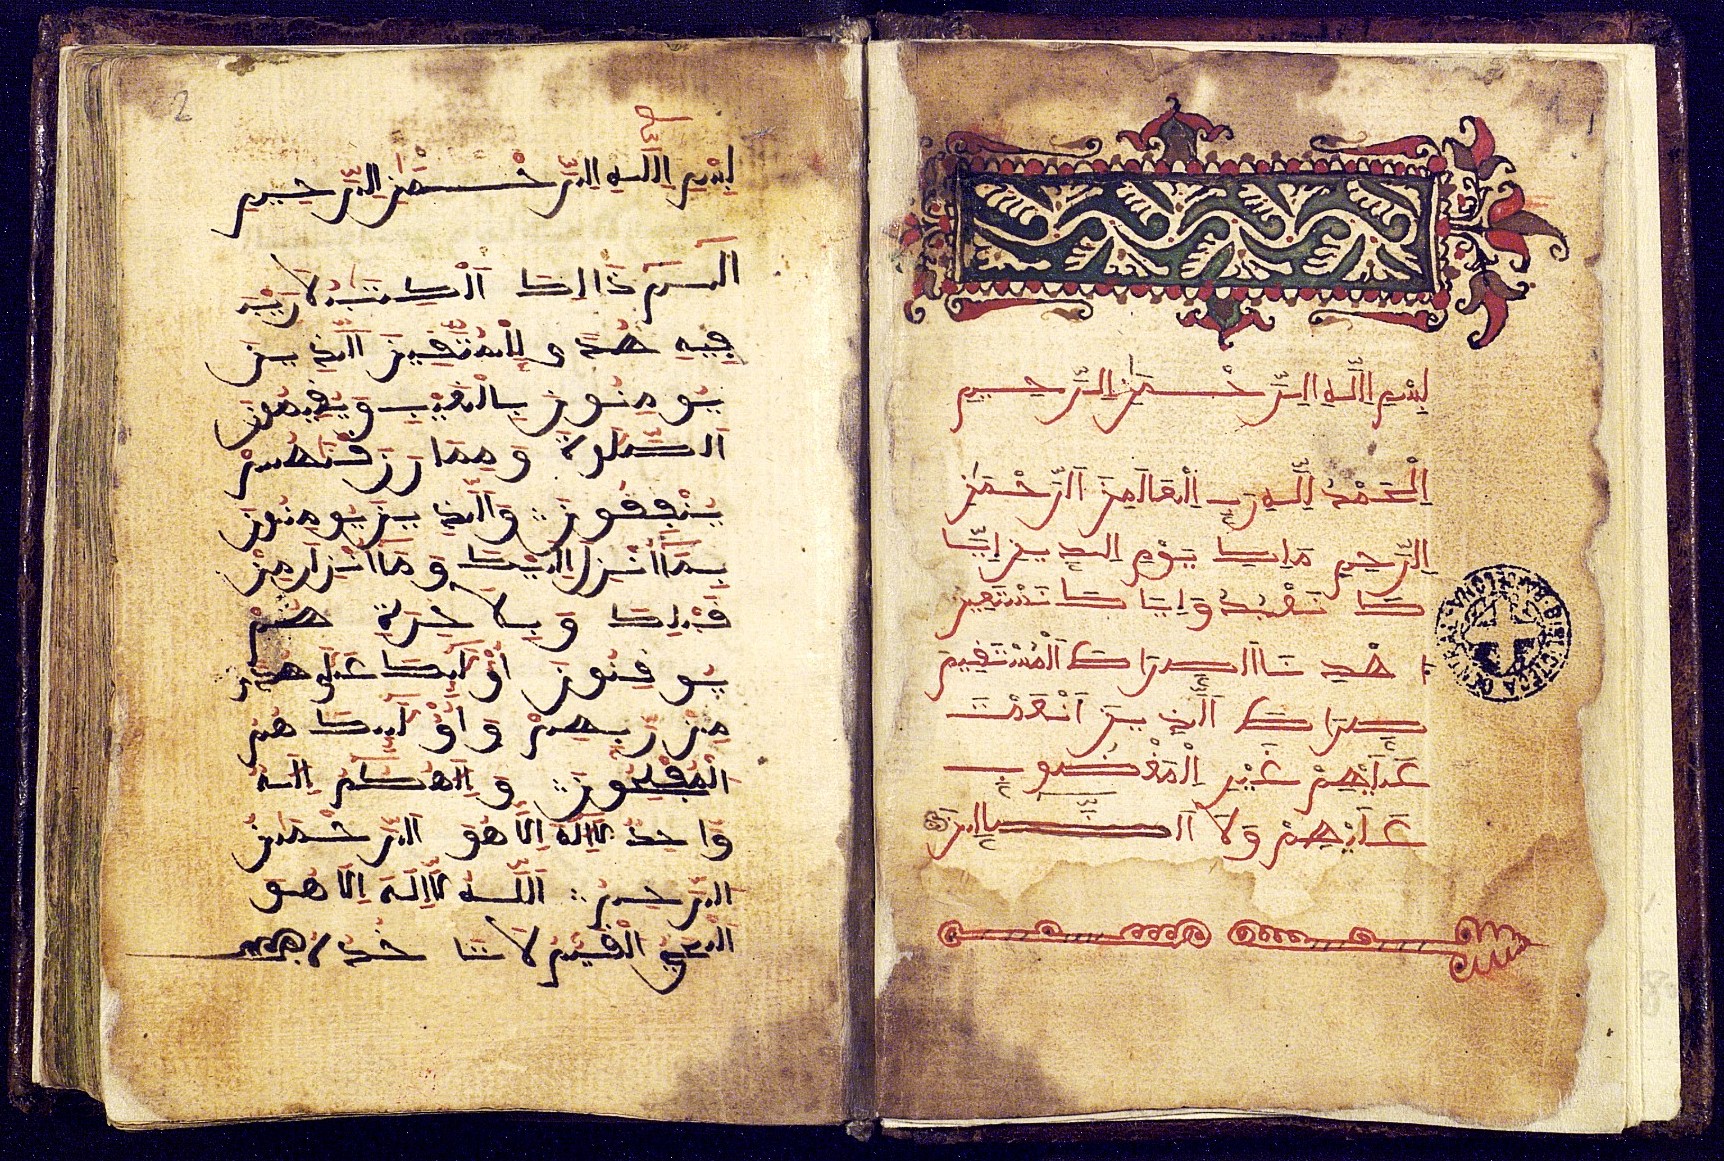 بِسْمِ اِللَّهِ اِلرَّحْمَٰنِ اِلرَّحِيمِ
اِلْحَمْدُ لِلَّهِ رَبِّ اِلْعَالَمِينَ اَلرَّحْمَٰنِ
اِلرَّحِيمِ مَالِكِ يَوْمِ اِلدِّينِ إِيَّا
كَ نَعْبُدُ وَإِيَّاكَ نَسْتَعِينُ
اِهْدِنَا اَلصِّرَاطَ اَلْمُسْتَقِيمَ
صِرَاطَ اَلَّذِينَ أَنْعَمْتَ
عَلَيْهِمْ غَيْرِ اِلْمَغْضُوبِ
عَلَيْهِمْ وَلَا اَلضَّالِّينَ
بِسْمِ اِللَّهِ اِلرَّحْمَٰنِ اِلرَّحِيمِ
الٓمٓ ذَالِكَ اَلْكِتَبُ لَا رَيْبَ
فِيهِ هُدًى لِلْمُتَّقِينَ اَلَّذِينَ
يُومِنُونَ بِالْغَيْبِ وَيُقِيمُونَ
اَلصَّلَوٰةَ وَمِمَّا رَزَقْنَٰهُمْ
يُنْفِقُونَ وَالَّذِينَ يُومِنُونَ
بِمَا أُنْزِلَ إِلَيْكَ وَمَا أُنْزِلَ مِنْ
قَبْلِكَ وَبِالْآخِرَةِ هُمْ
يُوقِنُونَ أُوْلَٰئِكَ عَلَىٰ هُدًى
مِنْ رَّبِّهِمْ وَأُوْلَٰئِكَ هُمُ
اَلْمُفْلِحُونَ وَإِلَٰهُكُمْ إِلَٰهٌ
وَاحِدٌ لَا إِلَٰهَ إِلَّا هُوَ اَلرَّحْمَٰنُ
اَلرَّحِيمُ اَللَّهُ لَا إِلَٰهَ إِلَّا هُوَ
اَلْحَيُّ اَلْقَيُّومُ لَا تَاخُذُهُ
2
1